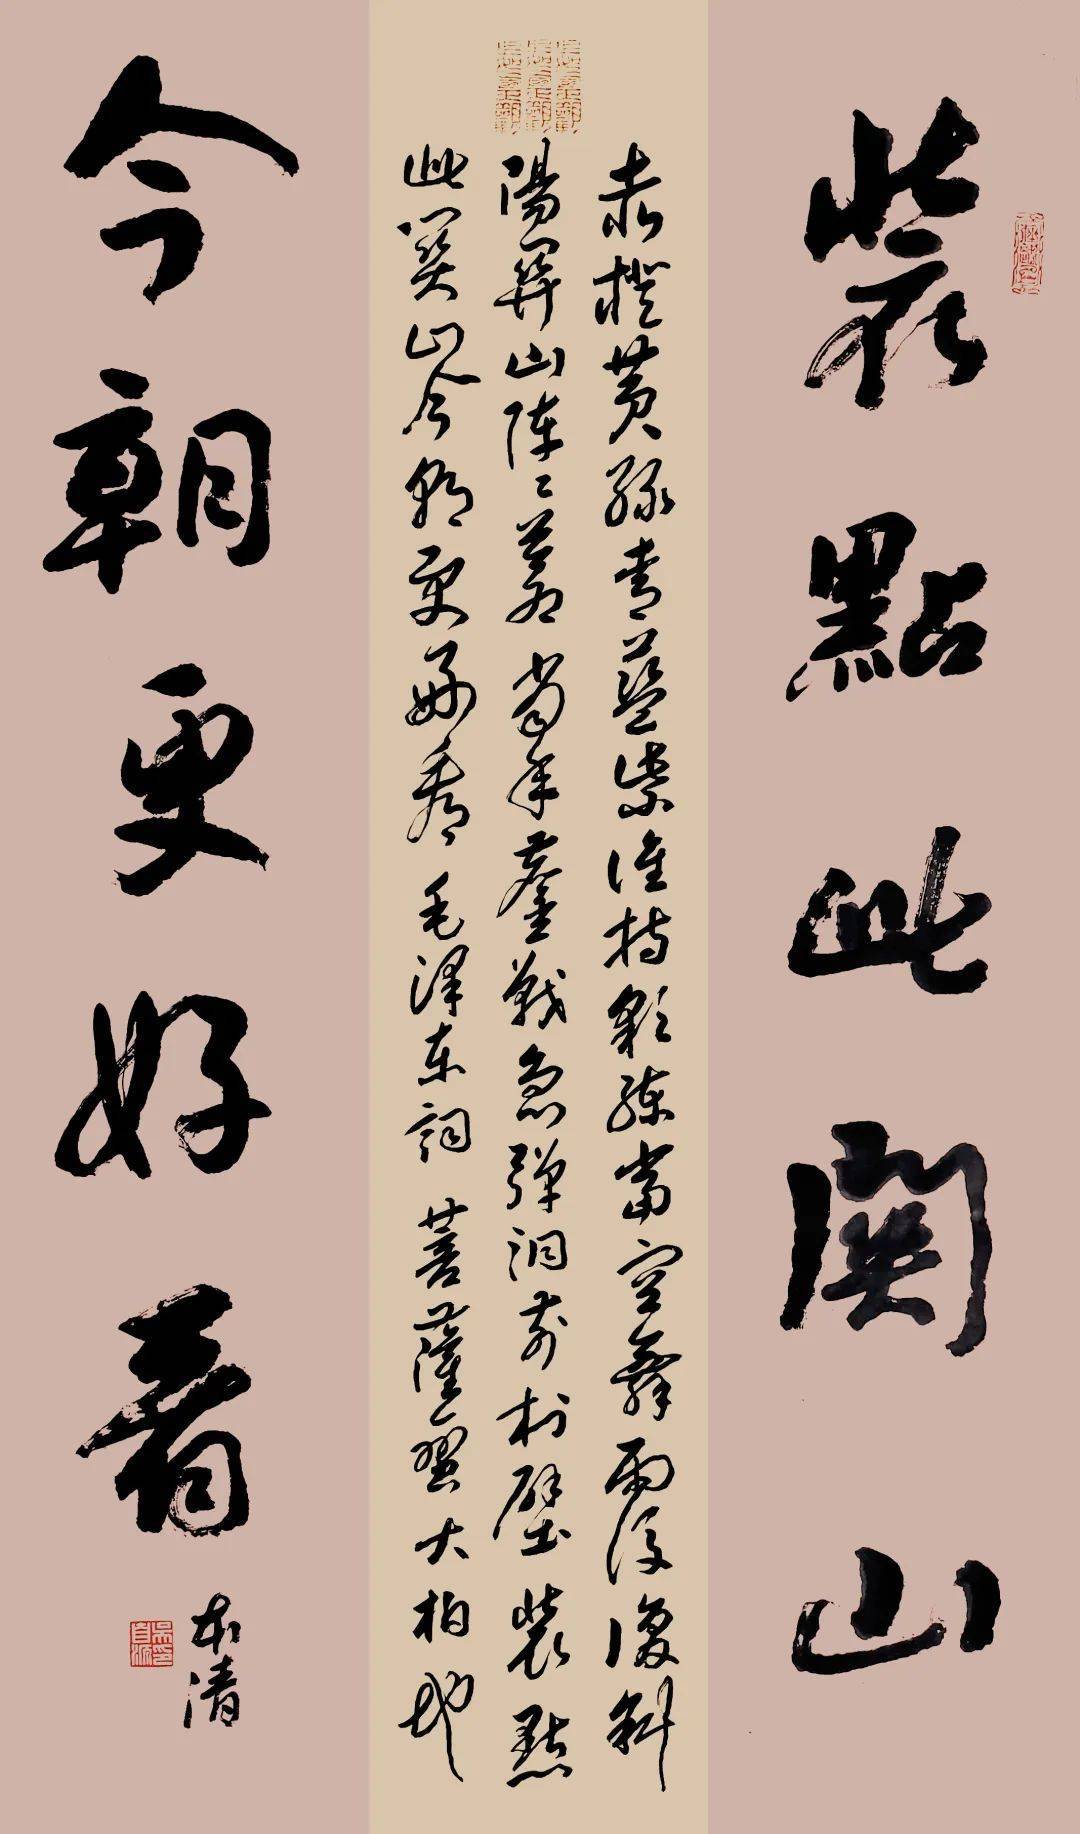 裝點此關山
赤橙黃綠青藍紫誰持彩練當空舞雨後復斜
陽關山陣々蒼當年鏖戰急彈洞前村壁裝點
此關山今朝更好看毛澤東詞菩薩蠻大柏地
今朝更好看
本清